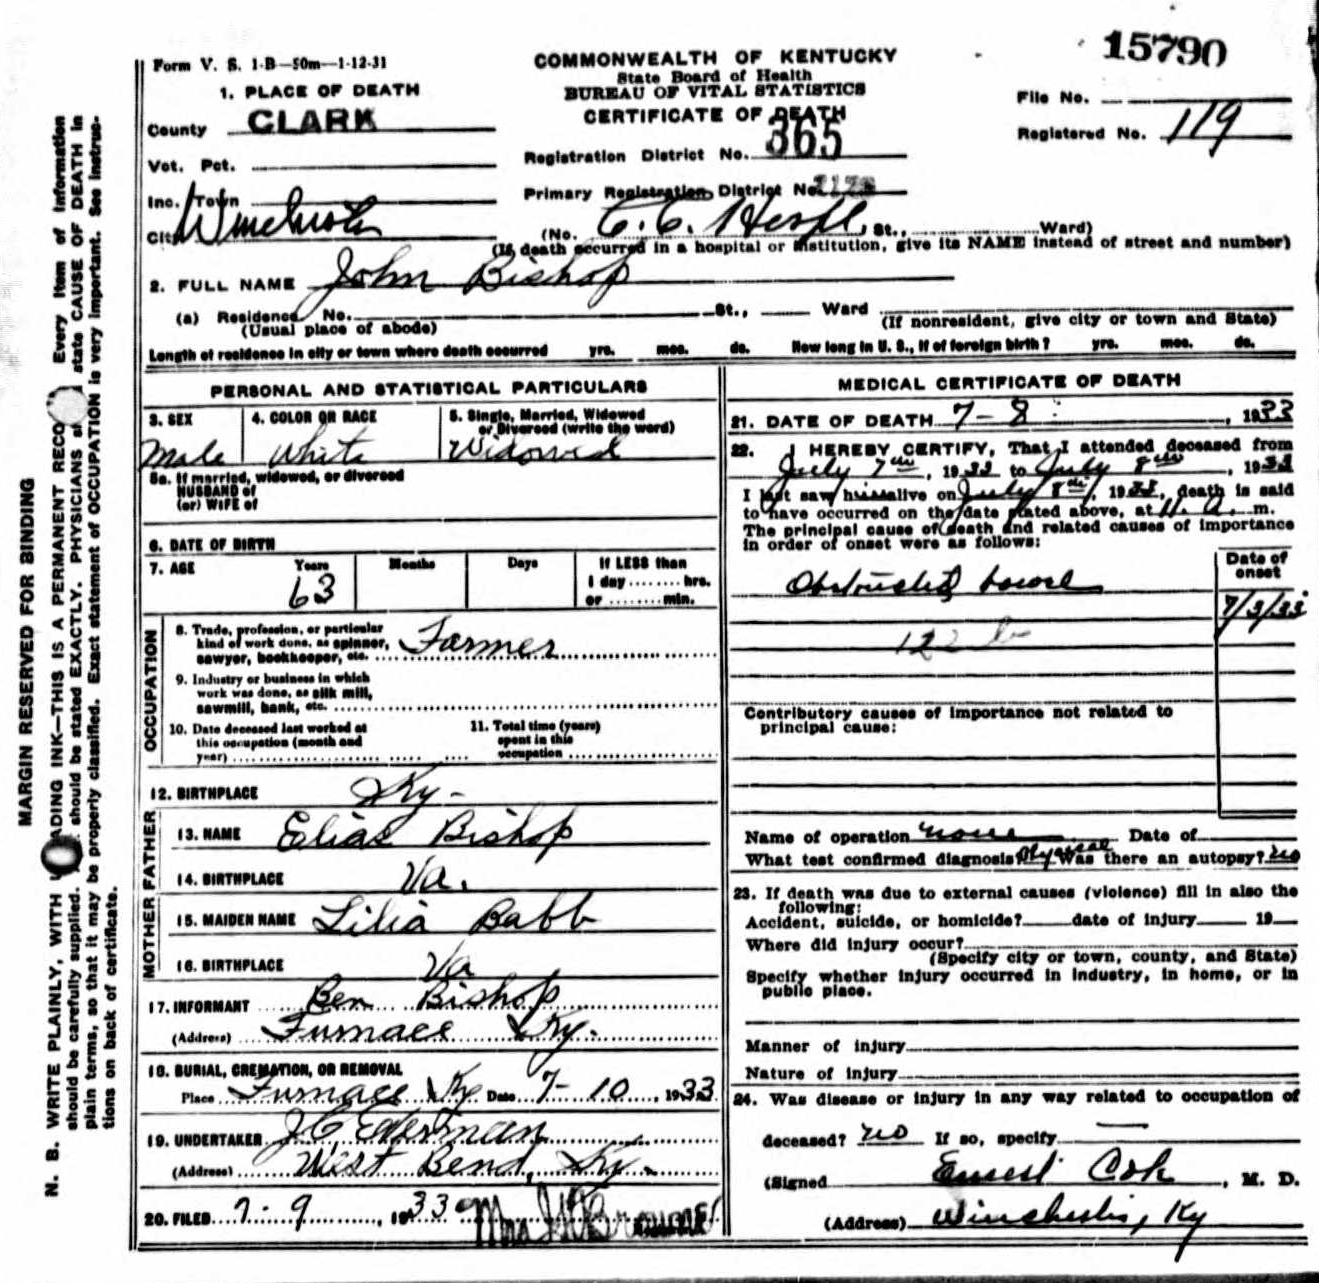 15790
Form V. S. 1-B—50m—1-12-31
COMMONWEALTH OF KENTUCKY
State Board of Health
BUREAU OF VITAL STATISTICS
CERTIFICATE OF DEATH
File No.
Registered No. 119
1. PLACE OF DEATH
County CLARK
Vot. Pct.
Inc. Town
City Winchester
Registration District No. 365
Primary Registration District No.
(No. C. C. Hospl. St., Ward)
(If death occurred in a hospital or institution, give its NAME instead of street and number)
2. FULL NAME John Bishop
(a) Residence No. St., Ward
(Usual place of abode)
(If nonresident, give city or town and State)
Length of residence in city or town where death occurred yrs. mos. ds. How long in U. S., if of foreign birth? yrs. mos. ds.
PERSONAL AND STATISTICAL PARTICULARS
3. SEX
Male
4. COLOR OR RACE
White
5. Single, Married, Widowed
or Divorced (write the word)
Widowed
5a. If married, widowed, or divorced
HUSBAND of
(or) WIFE of
6. DATE OF BIRTH
7. AGE Years Months Days If LESS than
63
1 day ........ hrs.
or ........ min.
OCCUPATION
8. Trade, profession, or particular
kind of work done, as spinner,
sawyer, bookkeeper, etc. Farmer
9. Industry or business in which
work was done, as silk mill,
sawmill, bank, etc.
10. Date deceased last worked at
this occupation (month and
year)
11. Total time (years)
spent in this
occupation
12. BIRTHPLACE Ky-
FATHER
13. NAME Elias Bishop
14. BIRTHPLACE Va.
MOTHER
15. MAIDEN NAME Lilia Babb
16. BIRTHPLACE Va
17. INFORMANT Ben Bishop
(Address) Furnace Ky.
18. BURIAL, CREMATION, OR REMOVAL
Place Furnace Ky Date 7-10, 1933
19. UNDERTAKER J C
(Address) West Bend, Ky.
20. FILED 7-9, 1933 Mrs
MEDICAL CERTIFICATE OF DEATH
21. DATE OF DEATH 7-8, 1933
22. I HEREBY CERTIFY, That I attended deceased from
July 7th, 1933 to July 8th, 1933
I last saw him alive on July 8th, 1933, death is said
to have occurred on the date stated above, at A. m.
The principal cause of death and related causes of importance
in order of onset were as follows:
Date of
onset
Obstructed bowel
7/3/33
122 b
Contributory causes of importance not related to
principal cause:
Name of operation none Date of
What test confirmed diagnosis? Was there an autopsy? no
23. If death was due to external causes (violence) fill in also the
following:
Accident, suicide, or homicide? date of injury 19
Where did injury occur?
(Specify city or town, county, and State)
Specify whether injury occurred in industry, in home, or in
public place.
Manner of injury
Nature of injury
24. Was disease or injury in any way related to occupation of
deceased? no If so, specify —
(Signed Ernest Cole, M. D.
(Address) Winchester, Ky
MARGIN RESERVED FOR BINDING
N. B. WRITE PLAINLY, WITH ADING INK—THIS IS A PERMANENT RECO Every item of information
should be carefully supplied. should be stated EXACTLY. PHYSICIANS state CAUSE OF DEATH in
plain terms, so that it may be properly classified. Exact statement of OCCUPATION is very important. See instruc-
tions on back of certificate.